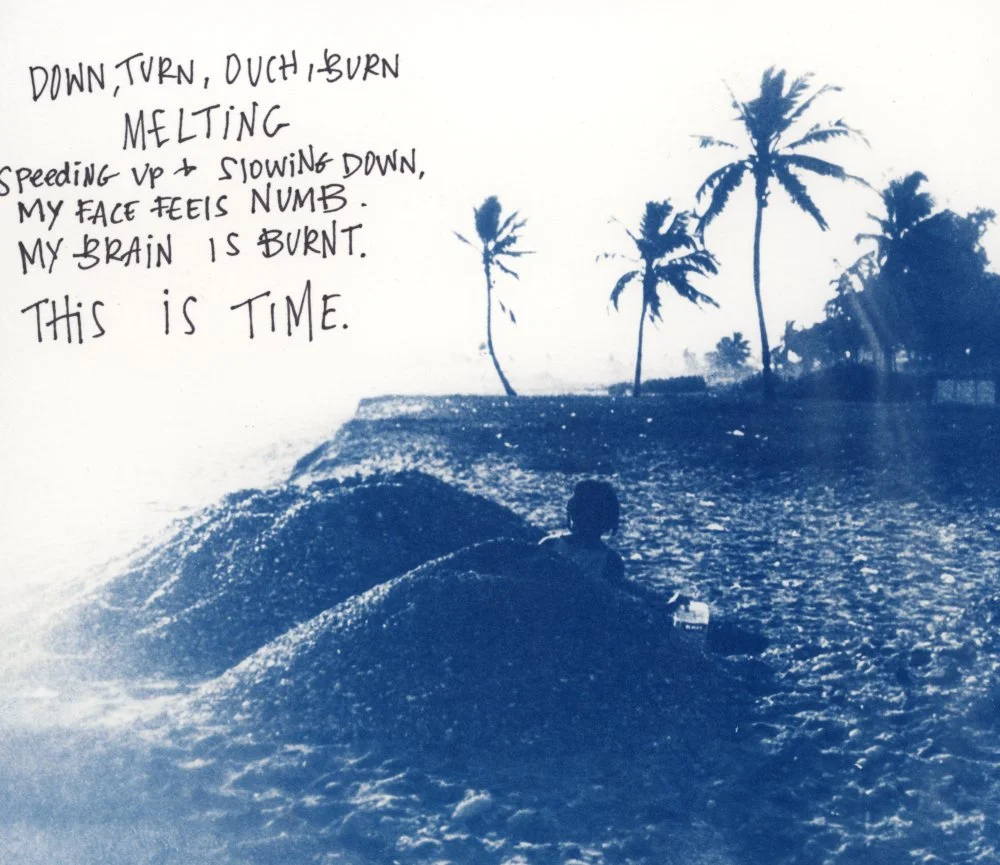 DOWN, TURN, OUCH, BURN
MELTING
SPeeDiNG UP + SlOWiNG DOWN,
MY FACE FEElS NUMB.
MY BRAiN IS BURNT.
THiS iS TIME.